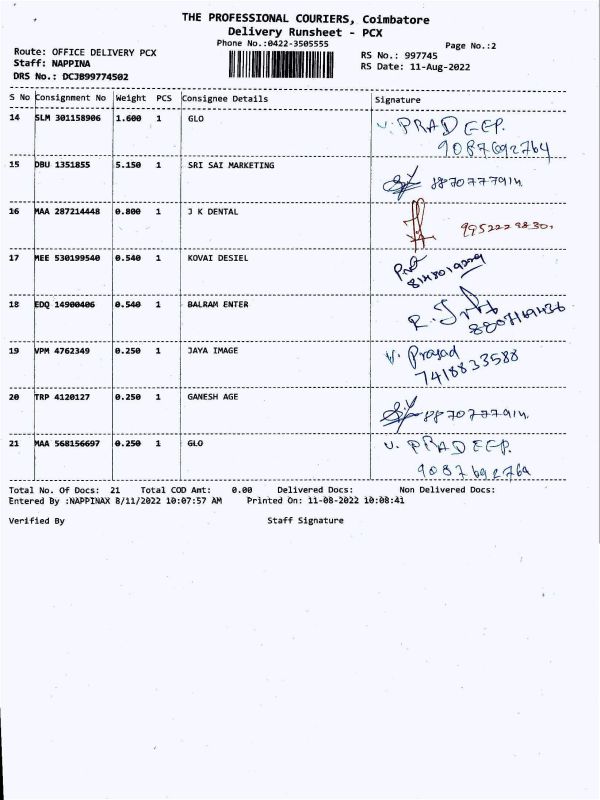 THE PROFESSIONAL COURIERS, Coimbatore
Delivery Runsheet - PCX
Phone No.:0422-3505555
Page No.:2
Route: OFFICE DELIVERY PCX
Staff: NAPPINA
DRS No.: DCJB99774502
RS No.: 997745
RS Date: 11-Aug-2022
S No Consignment No Weight PCS Consignee Details Signature
14 SLM 301158906 1.600 1 GLO V. PRADEEP.
9087692764
15 DBU 1351855 5.150 1 SRI SAI MARKETING
16 MAA 287214448 0.800 1 J K DENTAL
17 MEE 530199540 0.540 1 KOVAI DESIEL
18 EDQ 14900406 0.540 1 BALRAM ENTER
19 VPM 4762349 0.250 1 JAYA IMAGE V. Prasad
7418833588
20 TRP 4120127 0.250 1 GANESH AGE
21 MAA 568156697 0.250 1 GLO V. PRADEEP.
Total No. Of Docs: 21 Total COD Amt: 0.00 Delivered Docs: Non Delivered Docs:
Entered By :NAPPINAX 8/11/2022 10:07:57 AM Printed On: 11-08-2022 10:08:41
Verified By Staff Signature